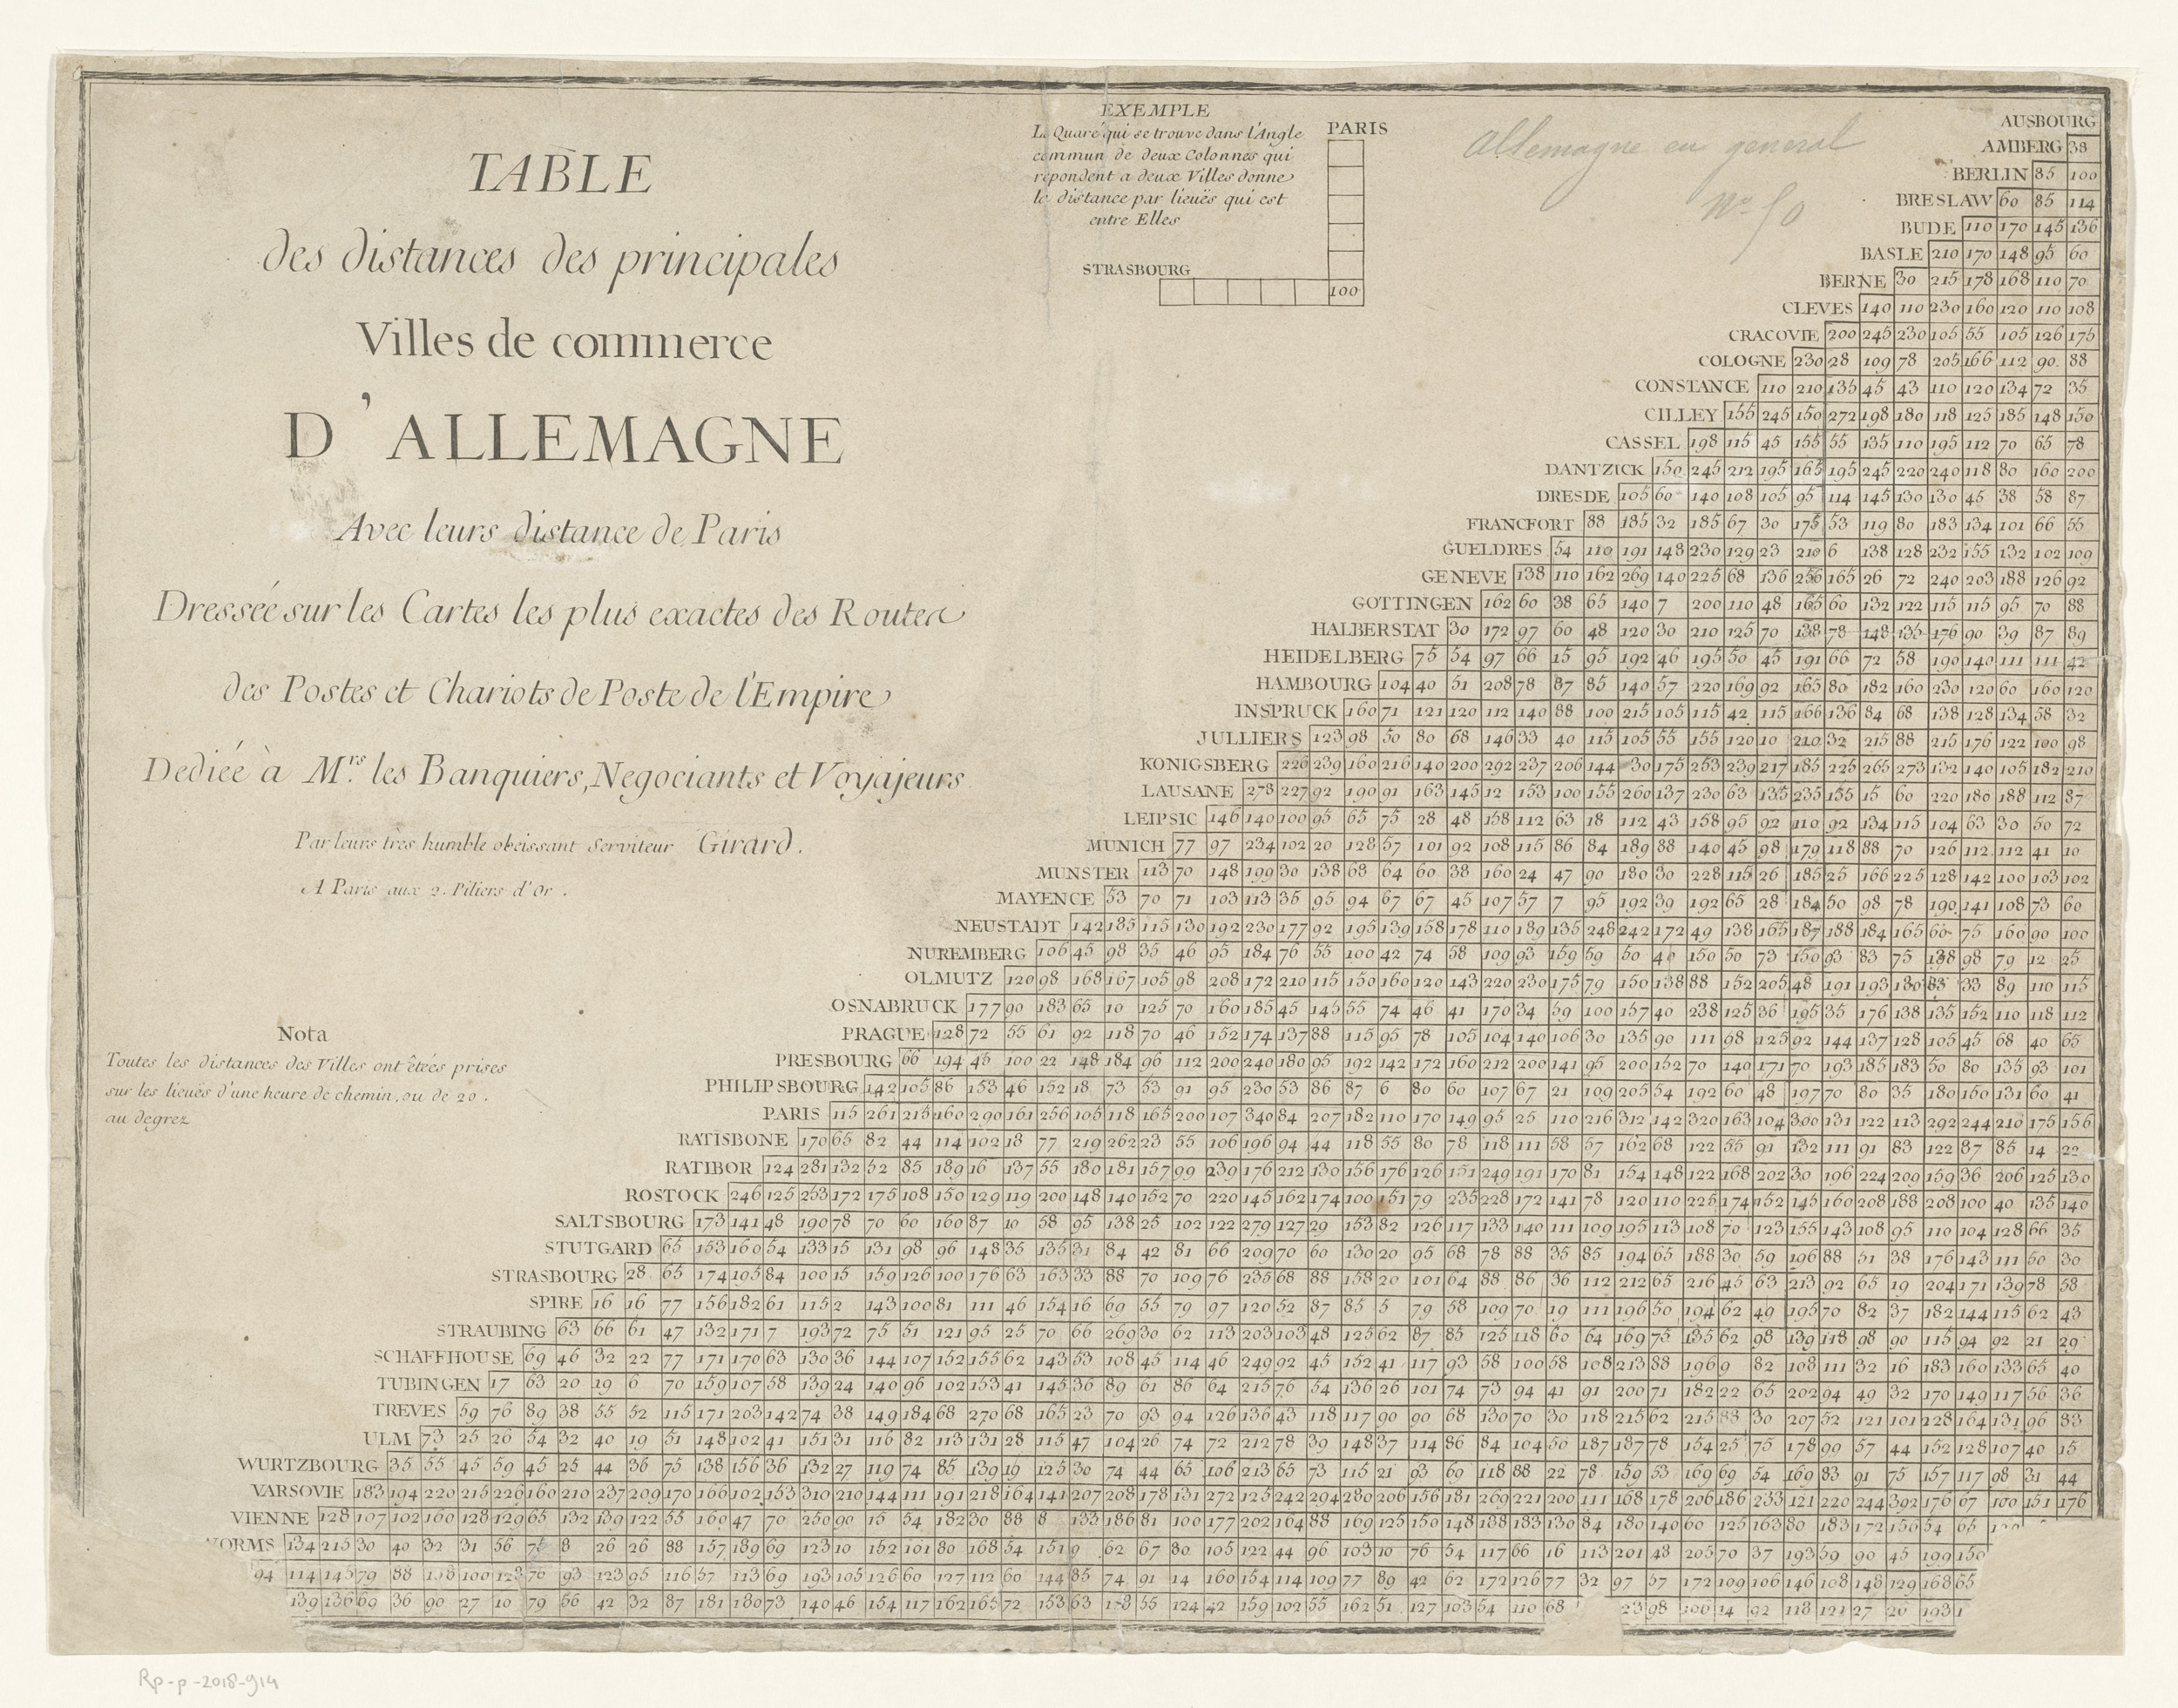 TABLE
des distances des principales
Villes de commerce
D'ALLEMAGNE
Avec leurs distance de Paris
Dressée sur les Cartes les plus exactes des Routes
des Postes et Chariots de Poste de l'Empire
Dediée à Mrs. les Banquiers, Negociants et Voyajeurs
Par leurs très humble obeissant Serviteur Girard.
A Paris aux 2. Piliers d'Or.
Nota
Toutes les distances des Villes ont êtées prises
sur les lieuës d'une heure de chemin, ou de 20.
au degrez
EXEMPLE
Le Quaré qui se trouve dans l'Angle
commun de deux Colonnes qui
repondent a deux Villes donne
la distance par lieuës qui est
entre Elles
PARIS
STRASBOURG
100
Allemagne en general
No 50
AUSBOURG
AMBERG 38
BERLIN 85 100
BRESLAW 60 85 114
BUDE 110 170 145 136
BASLE 210 170 148 95 60
BERNE 30 215 178 168 110 70
CLEVES 140 110 230 160 120 110 108
CRACOVIE 200 245 230 105 55 105 126 175
COLOGNE 230 28 109 78 205 166 112 90 88
CONSTANCE 110 210 135 45 43 110 120 134 72 35
CILLEY 155 245 150 272 198 180 118 125 185 148 150
CASSEL 198 115 45 155 55 135 110 195 112 70 65 78
DANTZICK 150 245 212 195 165 195 245 220 240 118 80 160 200
DRESDE 105 60 140 108 105 95 114 145 130 130 45 38 58 87
FRANCFORT 88 185 32 185 67 30 175 53 119 80 183 134 101 66 55
GUELDRES 54 110 191 148 230 129 23 210 6 138 128 232 155 132 102 109
GENEVE 138 110 162 269 140 225 68 136 256 165 26 72 240 203 188 126 92
GOTTINGEN 162 60 38 65 140 7 200 110 48 165 60 132 122 115 115 95 70 88
HALBERSTAT 30 172 97 60 48 120 30 210 125 70 138 78 148 135 176 90 39 87 89
HEIDELBERG 75 54 97 66 15 95 192 46 195 50 45 191 66 72 58 190 140 111 111 42
HAMBOURG 104 40 51 208 78 87 85 140 57 220 169 92 165 80 182 160 230 120 60 160 120
INSPRUCK 160 71 121 120 112 140 88 100 215 105 115 42 115 166 136 84 68 138 128 134 58 32
JULLIERS 123 98 50 80 68 146 33 40 115 105 55 155 120 10 210 32 215 88 215 176 122 100 98
KONIGSBERG 226 239 160 216 140 200 292 237 206 144 30 175 253 239 217 185 225 265 273 132 140 105 182 210
LAUSANE 278 227 92 190 91 163 145 12 153 100 155 260 137 230 63 135 235 155 15 60 220 180 188 112 87
LEIPSIC 146 140 100 95 65 75 28 48 158 112 63 18 112 43 158 95 92 110 92 134 115 104 63 30 50 72
MUNICH 77 97 234 102 20 128 57 101 92 108 115 86 84 189 88 140 45 98 179 118 88 70 126 112 112 41 10
MUNSTER 113 70 148 199 30 138 68 64 60 38 160 24 47 90 180 30 228 115 26 185 25 166 225 128 142 100 103 102
MAYENCE 53 70 71 103 113 35 95 94 67 67 45 107 57 7 95 192 39 192 65 28 184 50 98 78 190 141 108 73 60
NEUSTADT 142 185 115 130 192 230 177 92 195 139 158 178 110 189 135 248 242 172 49 138 165 187 188 184 165 60 75 160 90 100
NUREMBERG 106 45 98 35 46 95 184 76 55 100 42 74 58 109 93 159 59 50 40 150 50 73 150 93 83 75 138 98 79 12 25
OLMUTZ 120 98 168 167 105 98 208 172 210 115 150 160 120 143 220 230 175 79 150 138 88 152 205 48 191 193 130 83 33 89 110 115
OSNABRUCK 177 90 183 65 10 125 70 160 185 45 145 55 74 46 41 170 34 59 100 157 40 238 125 36 195 35 176 138 135 152 110 118 112
PRAGUE 128 72 55 61 92 118 70 46 152 174 137 88 115 95 78 105 104 140 106 30 135 90 111 98 125 92 144 137 128 105 45 68 40 65
PRESBOURG 66 194 45 100 22 148 184 96 112 200 240 180 95 192 142 172 160 212 200 141 95 200 152 70 140 171 70 193 185 183 50 80 135 93 101
PHILIPSBOURG 142 105 86 153 46 152 18 73 53 91 95 230 53 86 87 6 80 60 107 67 21 109 205 54 192 60 48 197 70 80 35 180 150 131 60 41
PARIS 115 261 218 160 290 161 256 105 118 165 200 107 340 84 207 182 110 170 149 95 25 110 216 312 142 320 163 104 300 131 122 113 292 244 210 175 156
RATISBONE 170 65 82 44 114 102 18 77 219 262 23 55 106 196 94 44 118 55 80 78 118 111 58 57 162 68 122 55 91 132 111 91 83 122 87 85 14 22
RATIBOR 124 281 132 52 85 189 16 137 55 180 181 157 99 239 176 212 130 156 176 126 151 249 191 170 81 154 148 122 168 202 30 196 224 209 159 36 206 125 130
ROSTOCK 246 125 253 172 175 108 150 129 119 200 148 140 152 70 220 145 162 174 100 151 79 235 228 172 141 78 120 110 225 174 152 145 160 208 188 208 100 40 135 140
SALTSBOURG 173 141 48 190 78 70 60 160 87 10 58 95 138 25 102 122 279 127 29 153 82 126 117 133 140 111 109 195 113 108 70 123 155 143 108 95 110 104 128 66 35
STUTGARD 65 153 160 54 133 15 131 98 96 148 35 135 31 84 42 81 66 209 70 60 130 20 95 68 78 88 35 85 194 65 188 30 59 196 88 51 38 176 143 111 50 30
STRASBOURG 28 65 174 195 84 100 15 159 126 100 176 63 163 33 88 70 109 76 235 68 88 158 20 101 64 88 86 36 112 212 65 216 45 63 213 92 65 19 204 171 139 78 58
SPIRE 16 16 77 156 182 61 115 2 143 100 81 111 46 154 16 69 55 79 97 120 52 87 85 5 79 58 109 70 19 111 196 50 194 62 49 195 70 82 37 182 144 115 62 43
STRAUBING 63 66 61 47 132 171 7 193 72 75 51 121 95 25 70 66 269 30 62 113 203 103 48 125 62 87 85 125 118 60 64 169 75 135 62 98 139 118 98 90 115 94 92 21 29
SCHAFFHOUSE 69 46 32 22 77 171 170 63 130 36 144 107 152 155 62 143 53 108 45 114 46 249 92 45 152 41 117 93 58 100 58 108 213 88 196 9 82 108 111 32 16 183 160 133 65 40
TUBINGEN 17 63 20 19 6 70 159 107 58 139 24 140 96 102 153 41 145 36 89 61 86 64 215 76 54 136 26 101 74 73 94 41 91 200 71 182 22 65 202 94 49 32 170 149 117 56 36
TREVES 59 76 89 38 55 52 115 171 203 142 74 38 149 184 68 270 68 165 23 70 93 94 126 136 43 118 117 90 90 68 130 70 30 118 215 62 215 88 30 207 52 121 101 228 164 131 96 83
ULM 73 25 26 54 32 40 19 51 148 102 41 151 31 116 82 113 131 28 115 47 104 26 74 72 212 78 39 148 37 114 86 84 104 50 187 187 78 154 25 75 178 99 57 44 152 128 107 40 15
WURTZBOURG 35 55 45 59 45 25 44 36 75 138 156 36 132 27 119 74 85 139 19 125 30 74 44 65 106 213 65 73 115 21 93 69 118 88 22 78 159 53 169 69 54 169 83 91 75 157 117 98 31 44
VARSOVIE 183 194 220 215 226 160 210 237 209 170 166 102 153 310 210 144 111 191 218 164 141 207 208 178 131 272 125 242 294 280 206 156 181 269 221 200 111 168 178 206 186 233 121 220 244 392 176 67 100 151 176
VIENNE 128 107 102 160 128 129 65 132 139 122 55 160 47 70 250 90 15 54 182 30 88 8 133 186 81 100 177 202 164 88 169 125 150 148 188 183 130 84 180 140 60 125 163 80 183 172 156 54 65
WORMS 134 215 30 40 32 31 56 75 8 26 26 88 157 189 69 123 10 152 101 80 168 54 151 9 62 67 80 105 122 44 96 103 10 76 54 117 66 16 113 201 48 205 70 37 193 59 90 45 199 150
94 114 145 79 88 138 100 123 76 93 123 95 116 57 113 69 193 105 126 60 127 112 60 144 85 74 91 14 160 154 114 109 77 89 42 62 172 126 77 32 97 57 172 109 106 146 108 148 129 168 65
139 136 69 36 90 27 10 79 56 42 32 87 181 180 73 140 46 154 117 162 165 72 153 63 55 124 42 159 102 55 162 51 127 103 54 110 68 98 14 92 118 121 27 20 193
Rp-p-2018-914